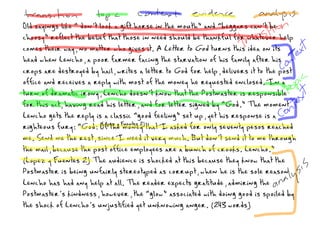 transition topic context evidence analysis
Old sayings like "don't look a gift horse in the mouth" and "beggars can't be
choosers" reflect the belief that those in need should be thankful for whatever help
comes their way, no matter who gives it. A Letter to God turns this idea on its
head when Lencho, a poor farmer facing the starvation of his family after his
crops are destroyed by hail, writes a letter to God for help, delivers it to the post
office and receives a reply with most of the money he requested enclosed. In a
turn of dramatic irony, Lencho doesn't know that the Postmaster is responsible
for this act, having read his letter, and for letter signed by "God." The moment
Lencho gets the reply is a classic "good feeling" set up, yet his response is a
righteous fury: "God: Of the money that I asked for only seventy pesos reached
me. Send me the rest, since I need it very much. But don't send it to me through
the mail, because the post office employees are a bunch of crooks. Lencho."
(Lopez y Fuentes 2) The audience is shocked at this because they know that the
Postmaster is being unfairly stereotyped as corrupt, when he is the sole reason
Lencho has had any help at all. The reader expects gratitude, admiring the
Postmaster's kindness, however, the "glow" associated with doing good is spoiled by
the shock of Lencho's unjustified yet unknowing anger. (245 words)
context
analysis